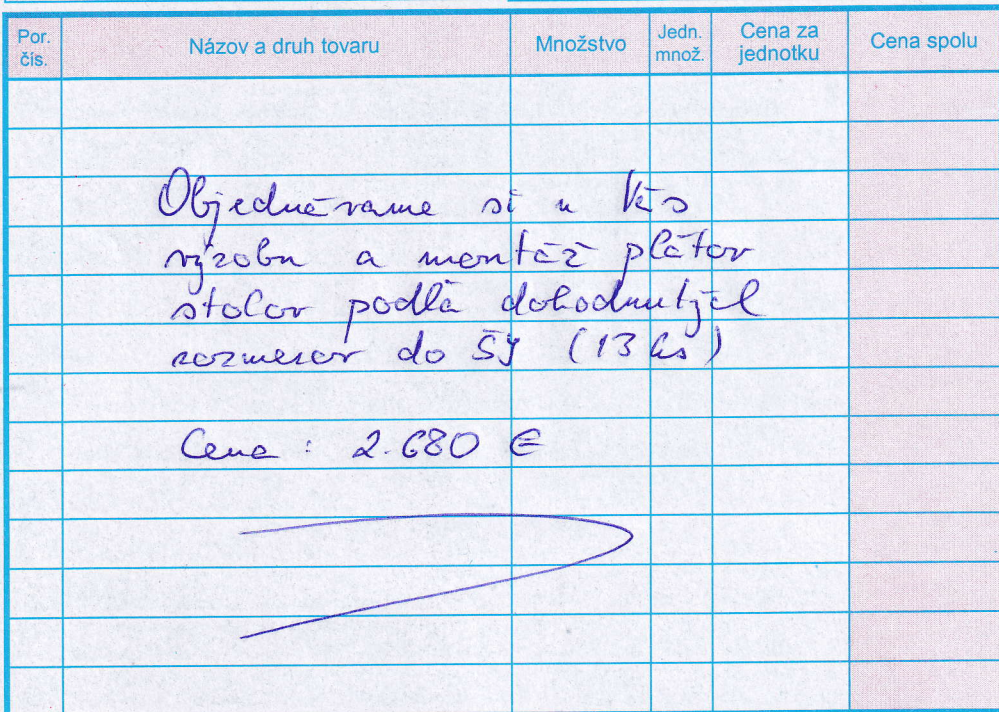 Por. čís.
Názov a druh tovaru
Množstvo
Jedn. množ.
Cena za jednotku
Cena spolu
Objednávame si u Vás
výrobu a montáž plátov
stolov podľa dohodnutých
rozmerov do ŠJ (13 ks)
Cena : 2.680 €